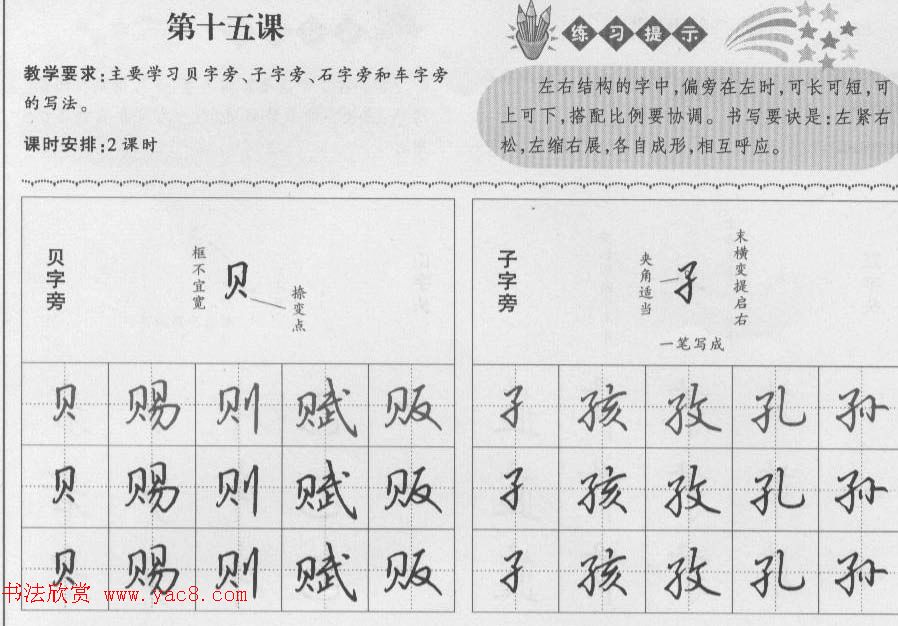 第十五课
教学要求:主要学习贝字旁、子字旁、石字旁和车字旁
的写法。
课时安排:2课时
练习提示
左右结构的字中,偏旁在左时,可长可短,可
上可下,搭配比例要协调。书写要诀是:左紧右
松,左缩右展,各自成形,相互呼应。
贝字旁
框不宜宽
贝
捺变点
子字旁
夹角适当
子
末横变提启右
一笔写成
贝 赐 则 赋 贩
贝 赐 则 赋 贩
贝 赐 则 赋 贩
子 孩 孜 孔 孙
子 孩 孜 孔 孙
子 孩 孜 孔 孙
书法欣赏 www.yac8.com